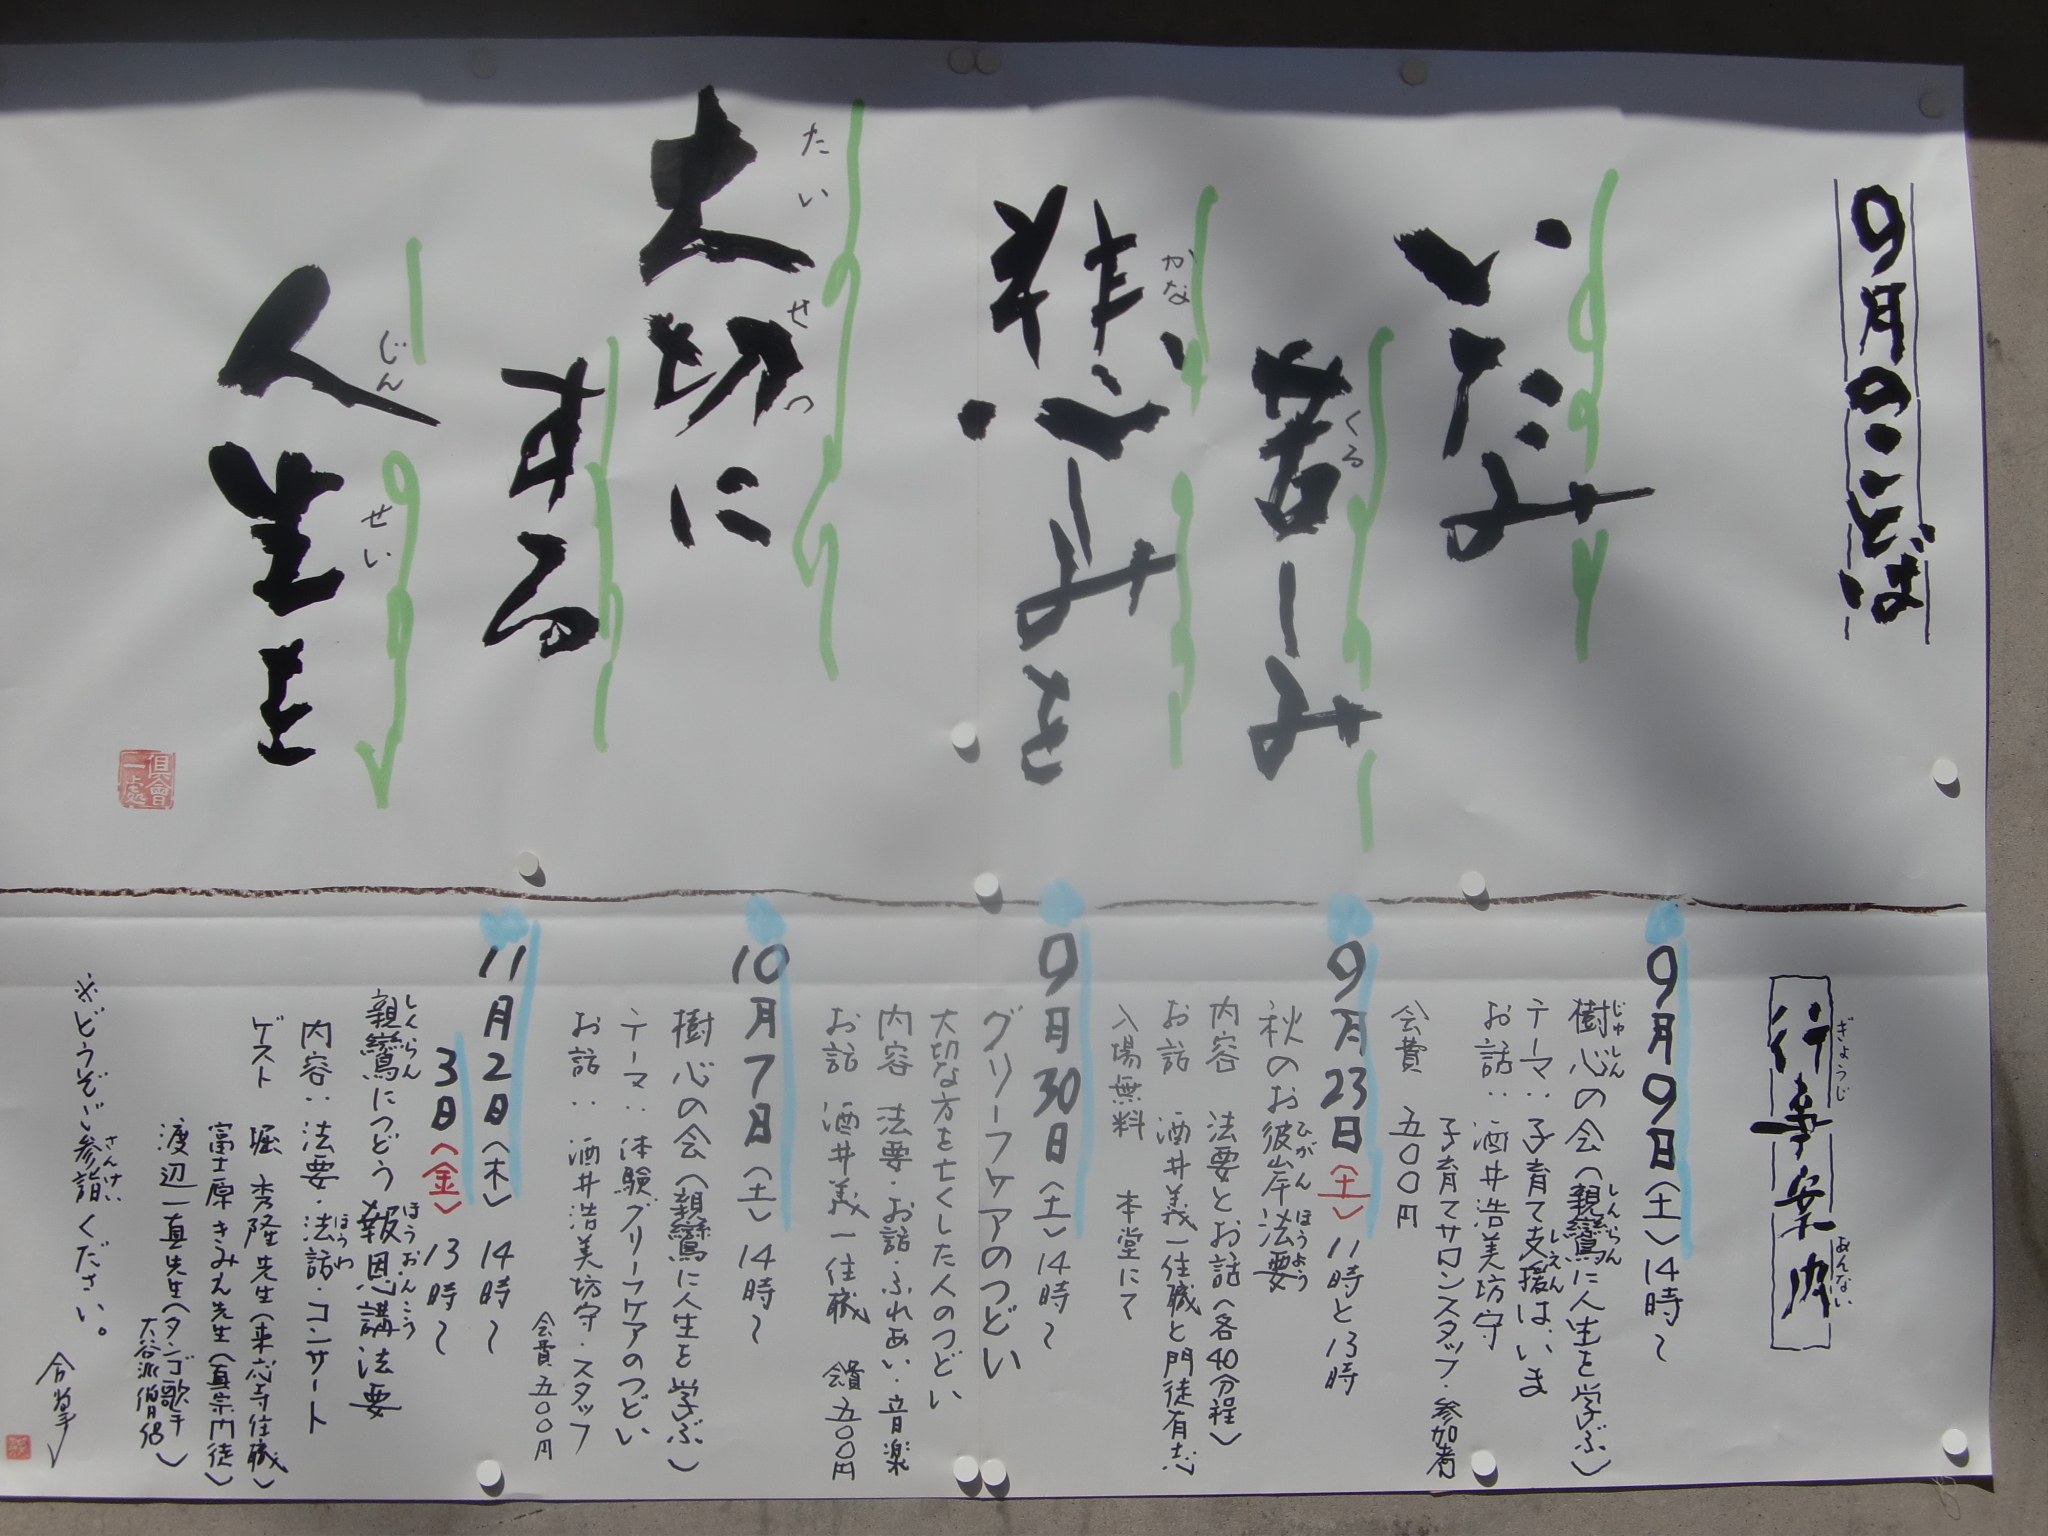 9月のことば
いたみ
苦しみ
くる
悲しみを
かな
大切に
たいせつ
する
人生を
じんせい
倶會一處
行事案内
ぎょうじあんない
9月9日(土)14時〜
樹心の会(親鸞に人生を学ぶ)
じゅしん しんらん
テーマ:子育て支援は、いま
しえん
お話:酒井浩美坊守
子育てサロンスタッフ・参加者
会費 五〇〇円
9月23日(土)11時と13時
秋のお彼岸法要
ひがん ほうよう
内容 法要とお話(各40分程)
お話 酒井義一住職と門徒有志
入場無料 本堂にて
9月30日(土)14時〜
グリーフケアのつどい
大切な方を亡くした人のつどい
内容 法要・お話・ふれあい・音楽
お話 酒井義一住職 会費 五〇〇円
10月7日(土)14時〜
樹心の会(親鸞に人生を学ぶ)
テーマ:体験グリーフケアのつどい
お話: 酒井浩美坊守・スタッフ
会費 五〇〇円
11月2日(木)14時〜
3日(金)13時〜
親鸞につどう 報恩講法要
しんらん ほうおんこう
内容:法要・法話・コンサート
ほうわ
ゲスト 堀 秀隆先生(来応寺住職)
富士原きみえ先生(真宗門徒)
渡辺一真先生(タンゴ歌手)
大谷派僧侶
※どうぞご参詣ください。
さんけい
合掌